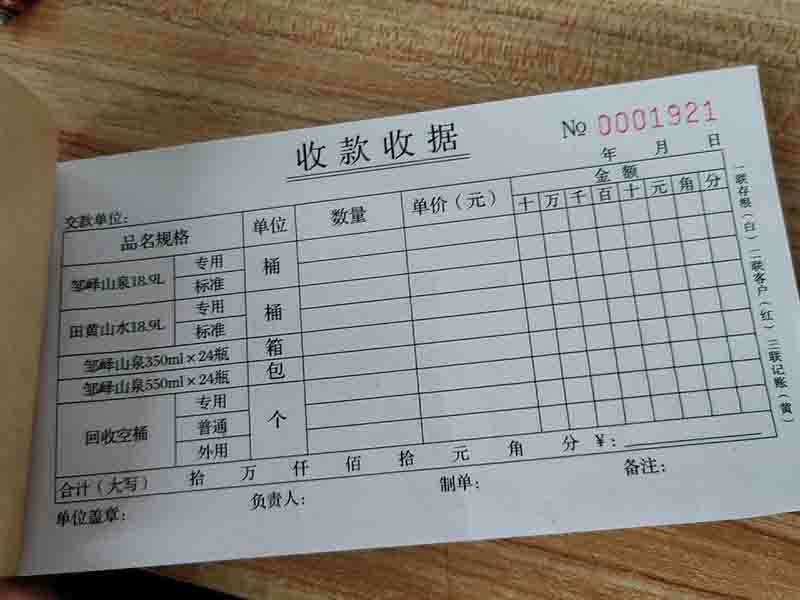 收款收据
№ 0001921
年 月 日
交款单位：
品名规格 单位 数量 单价（元） 金额
十 万 千 百 十 元 角 分
邹峄山泉18.9L 专用 桶
标准
田黄山水18.9L 专用 桶
标准
邹峄山泉350ml×24瓶 箱
邹峄山泉550ml×24瓶 包
回收空桶 专用 个
普通
外用
合计（大写） 拾 万 仟 佰 拾 元 角 分 ¥：
单位盖章： 负责人： 制单： 备注：
一联存根（白）二联客户（红）三联记账（黄）